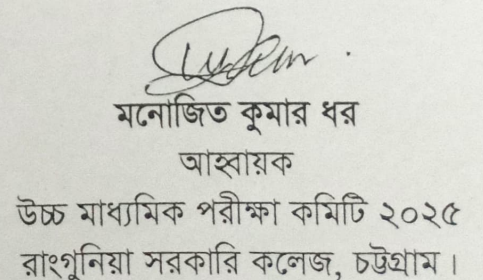 মনোজিত কুমার ধর
আহ্বায়ক
উচ্চ মাধ্যমিক পরীক্ষা কমিটি ২০২৫
রাংগুনিয়া সরকারি কলেজ, চট্টগ্রাম।